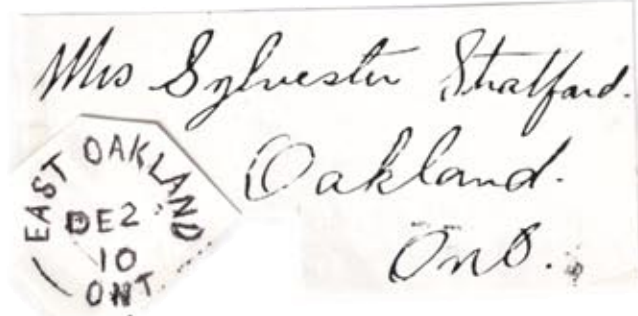 Mrs Sylvester Stratford.
Oakland.
Ont.
EAST OAKLAND
DE 2
10
ONT